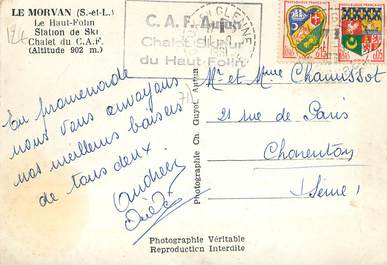 LE MORVAN (S.-et-L.)
Le Haut-Folin
Station de Ski
Chalet du C.A.F.
(Altitude 902 m.)
C.A.F. Autun
Chalet Skieur
du Haut-Folin
En promenade
nous vous envoyons
nos meilleurs baisers
de tous deux.
Photographie Ch. Guyot, Autun
Mr et Mme Chamissot
21 rue de Paris
Charenton
(Seine)
Photographie Véritable
Reproduction Interdite